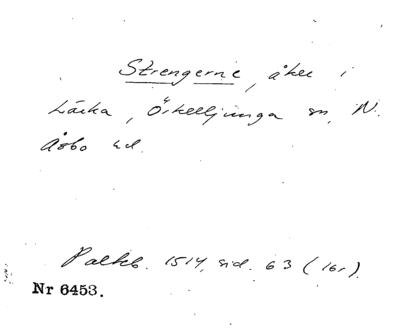 Strengerne, åker i
Lärka, Örkelljunga sn, N.
Åsbo hd.
Palteb. 1514, sid. 63 (16r).
Nr 6453.